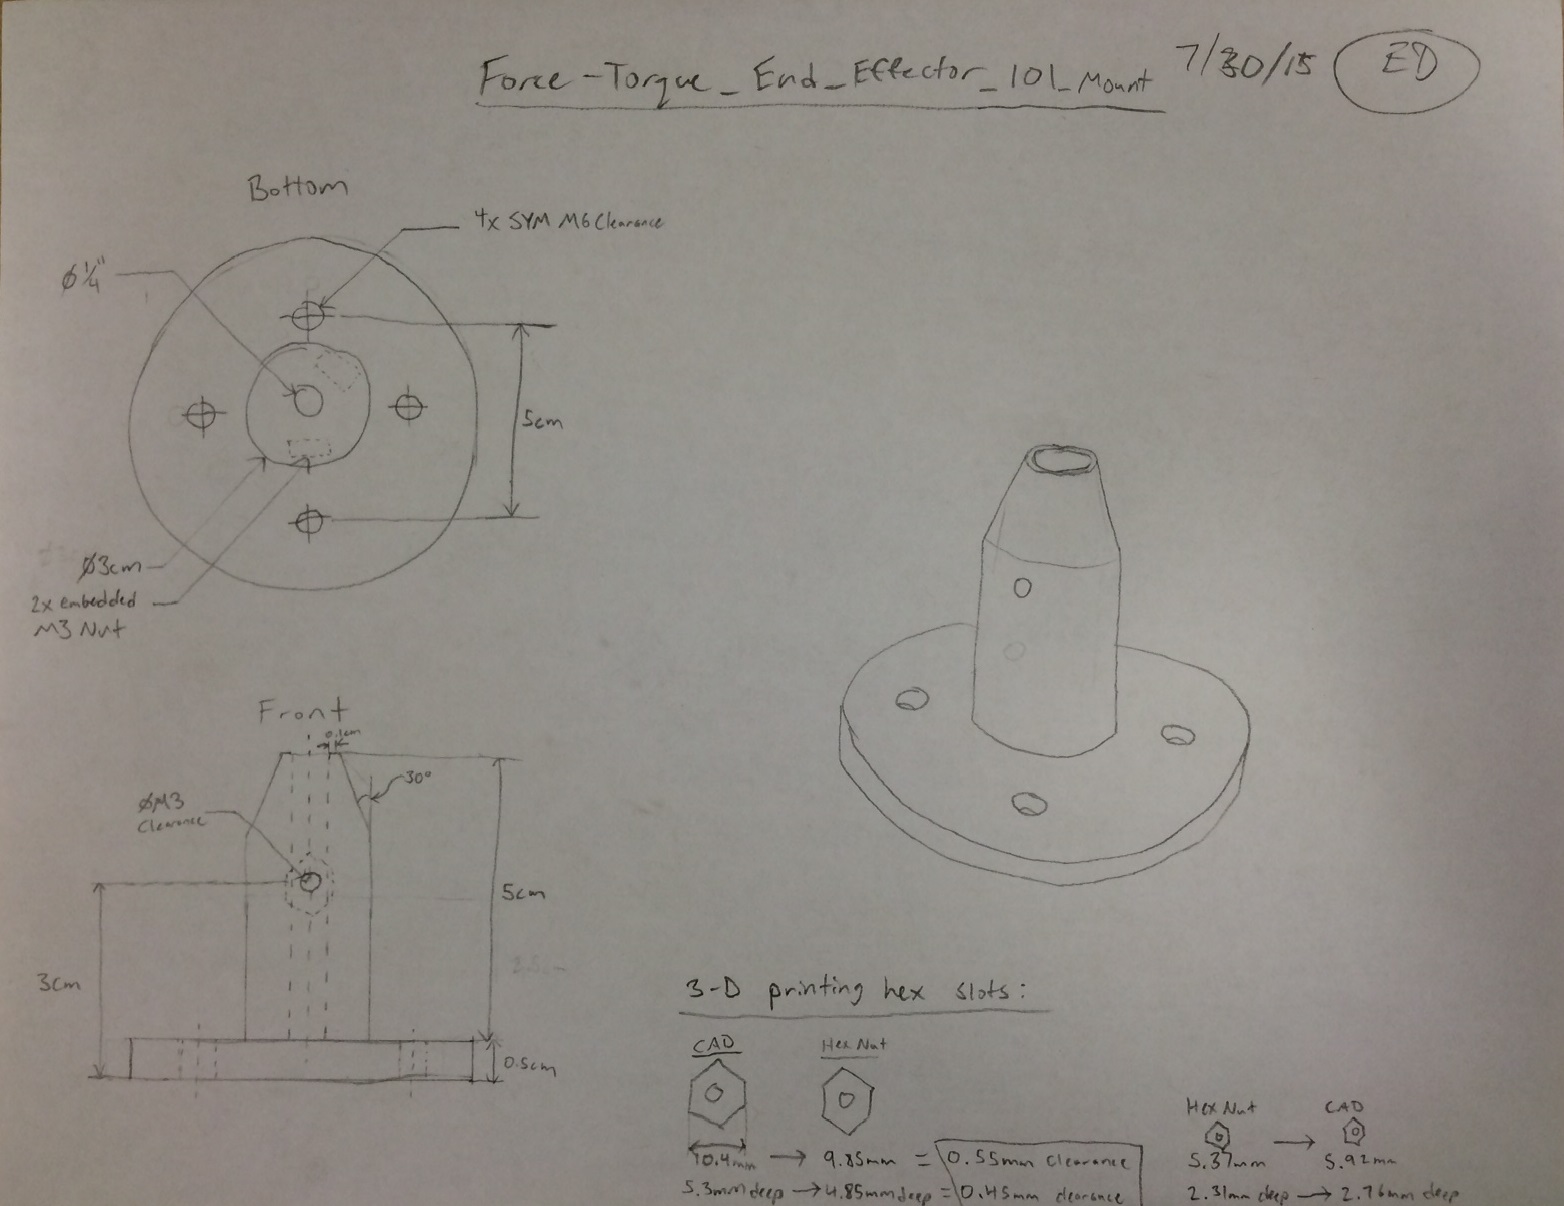 Force-Torque_End_Effector_101_Mount 7/30/15 ED
Bottom
Ø 1/4"
4x SYM M6 Clearance
5cm
Ø3cm
2x embedded
M3 Nut
Front
0.1cm
30°
ØM3
Clearance
3cm
5cm
0.5cm
3-D printing hex slots:
CAD
Hex Nut
10.4mm → 9.85mm = 0.55mm clearance
5.3mm deep → 4.85mm deep = 0.45mm clearance
Hex Nut CAD
5.37mm → 5.92mm
2.31mm deep → 2.76mm deep